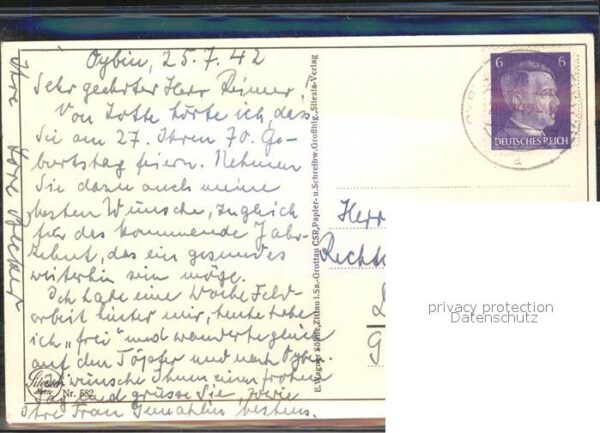 Oybin, 25.7.42
Sehr geehrter Herr
Von Lotte hörte ich, dass
Sie am 27. Ihren 70. Ge-
burtstag feiern. Nehmen
Sie dazu auch meine
besten Wünsche, zugleich
für das kommende Jahr-
zehnt, das ein gesundes
weiterhin sein möge.
Ich habe eine Woche Feld-
arbeit hinter mir, heute habe
ich „frei" und wanderte gleich
auf den Töpfer und nach Oybin.
Ich wünsche Ihnen einen frohen
Tag und grüsse Sie, sowie
Ihre Frau Gemahlin bestens.
Ihre
Silesia
Nr. 582
E. Wagner Söhne, Zittau i. Sa.-Grottau CSR, Papier- u. Schreibw. Großhlg., Silesia-Verlag
6 6
DEUTSCHES REICH
Herr
Rechts
D
G
privacy protection
Datenschutz